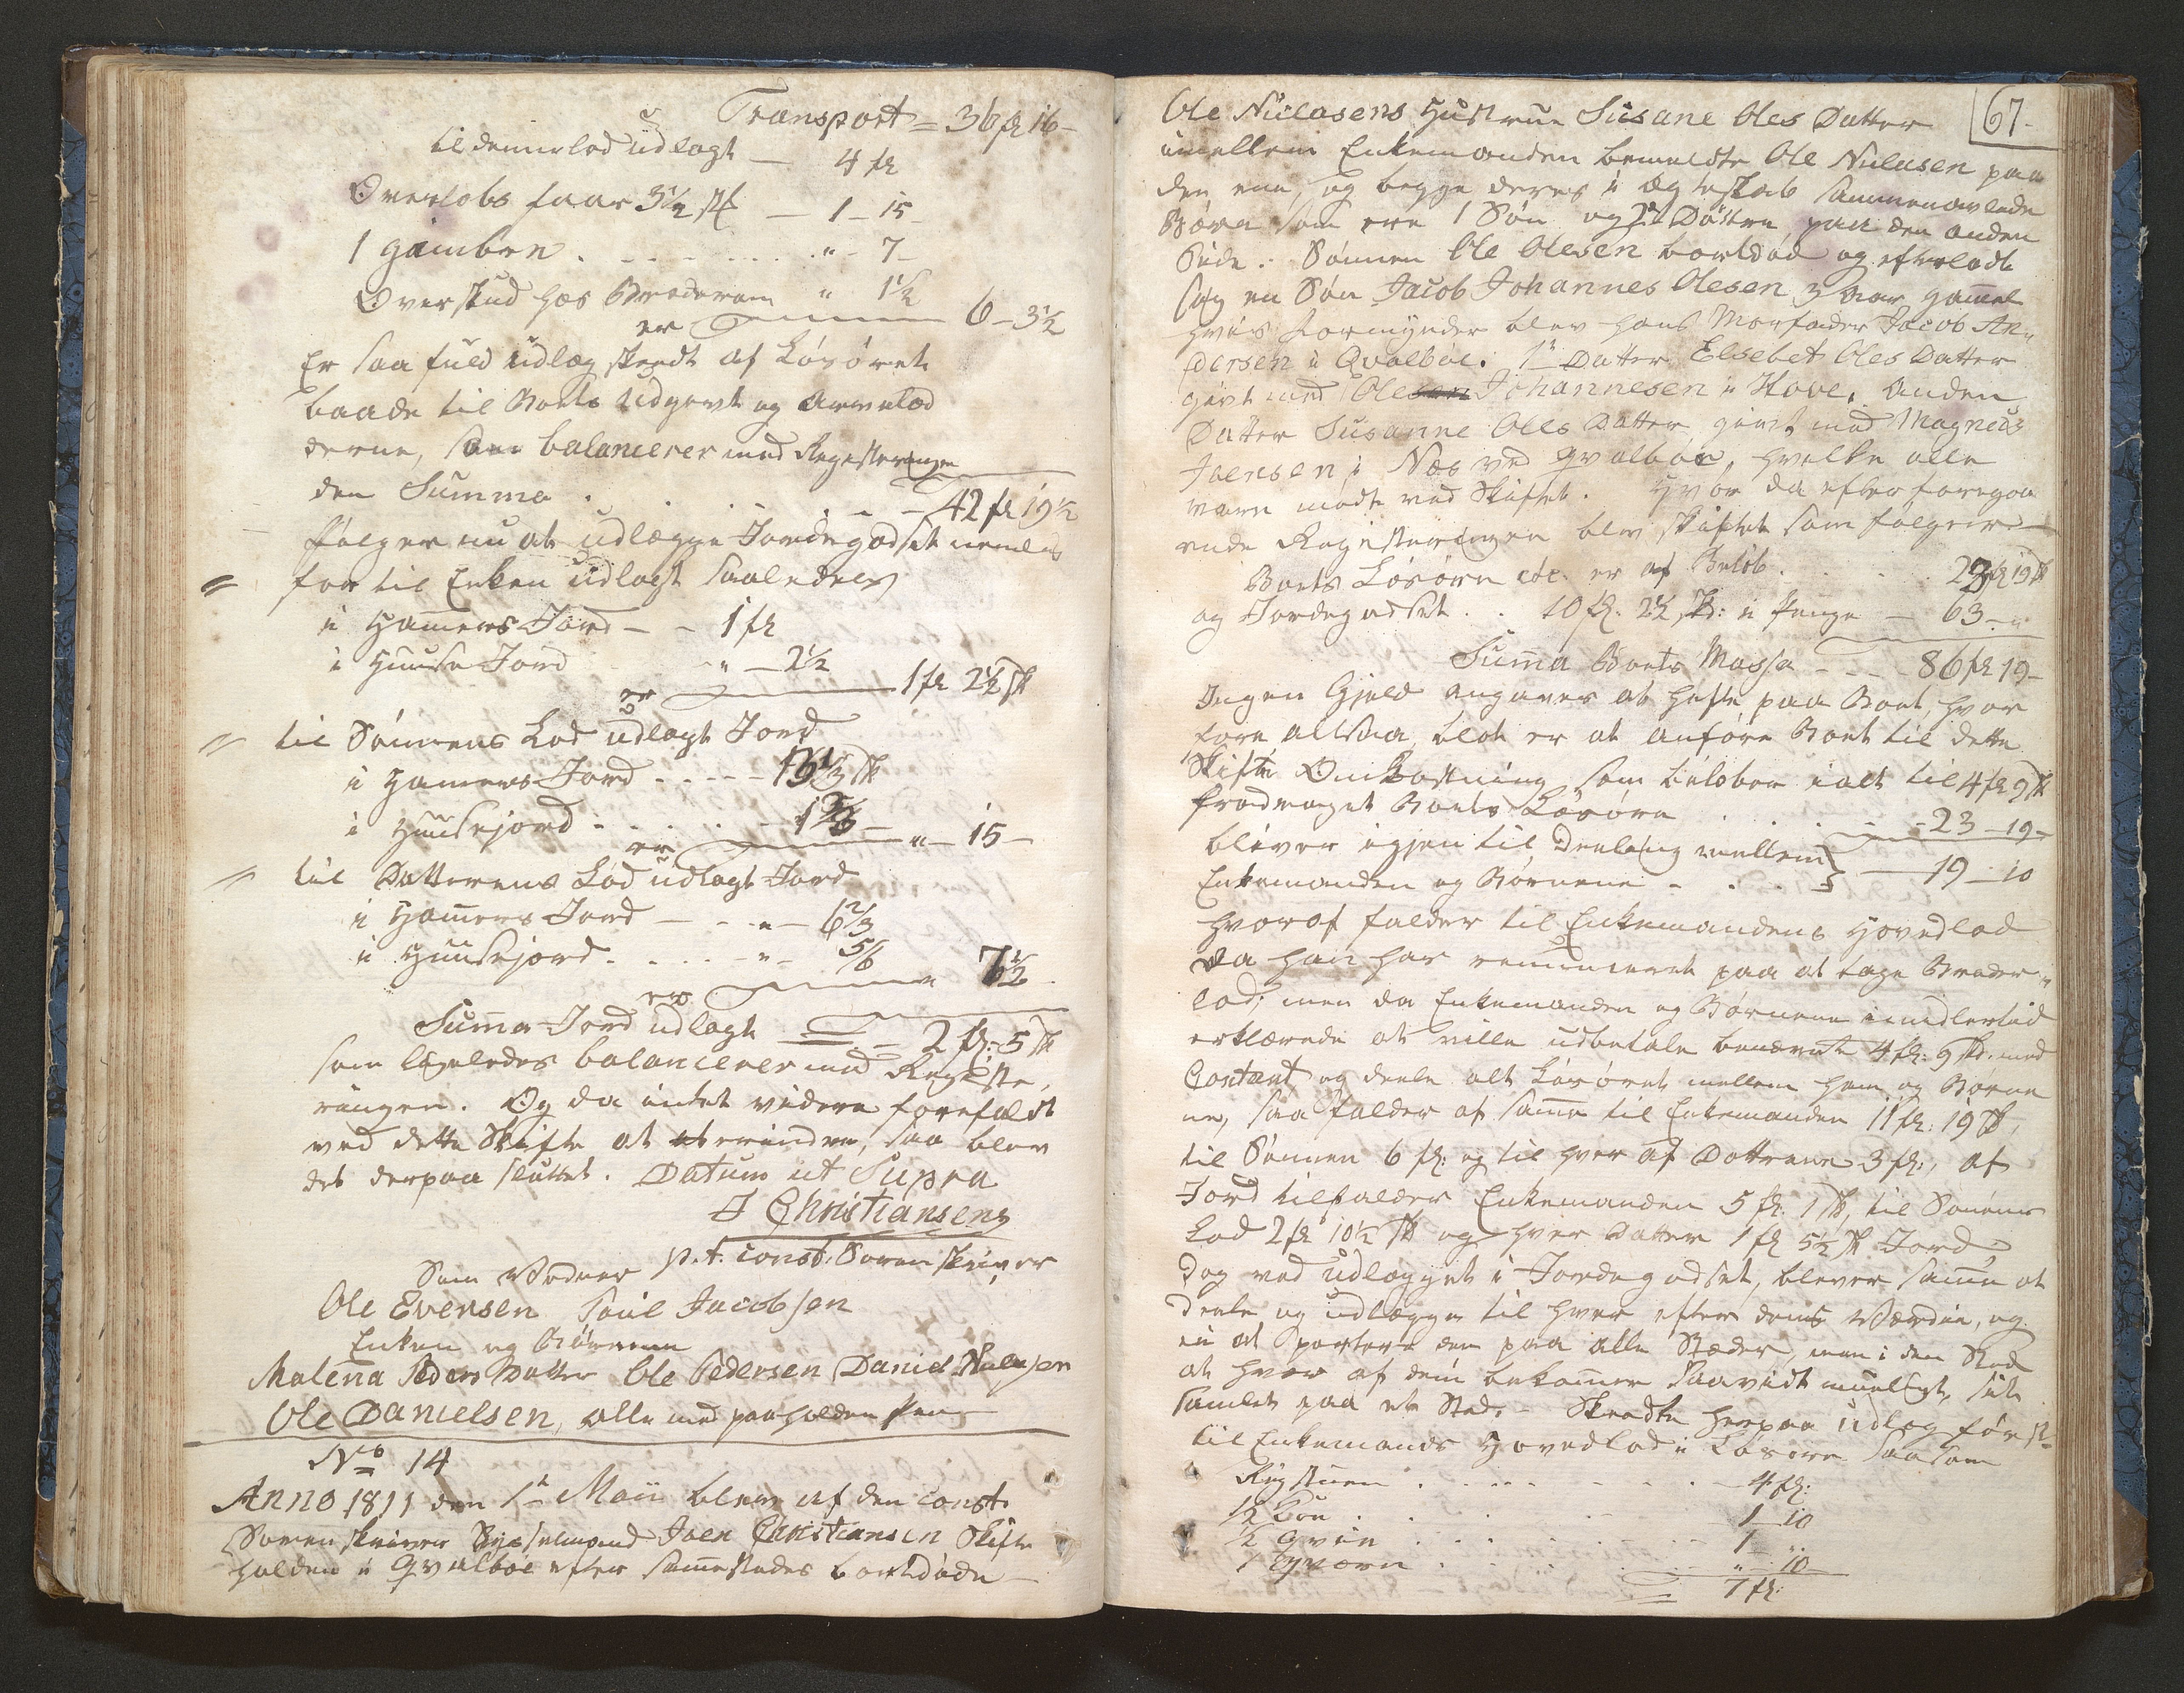 Transport = 36 fl 16 -
til denne lod udlagt — 4 fl
Overlobs faar 3½ st — 1 - 15 -
1 gimber . . . . . . " - 7 -
Overskud hos Broderen " 1½
er 6 - 3½
Er saa fuld udlæg skeedt af Løsøret
baade til Boets Udgivt og arvelod
derne, som balancerer med Registeringen
den Summa . . . . . 42 fl 19½
følger nu at udlægge Jordegodset nemlig
for til Enken udlagt saaledes
i Hamers Jord — - 1 fl
i Huuse Jord - " - 2½
er 1 fl 2½ sk
til Sønnens Lod udlagt Jord
i Hamers Jord - - - - - 13⅓ sk
i Huusejord - . . . - 1⅔ -
er " - 15 -
til Datterens Lod udlagt Jord
i Hamers Jord — - " - 6⅔
i Huusejord - . . . - " - 5/6
er " 7½
Suma Jord udlagt = - 2 fl: 5 sk
som ligeledes balancerer med Registe,
ringen. Og da intet videre forefaldt
ved dette Skifte at erindre, saa blev
det derpaa sluttet. Datum ut Supra
J Christiansen
p.t. const. Sorenskriver
Som Vidner
Ole Evensen Poul Jacobsen
Enken og Børnene
Malena Peders Datter Ole Pedersen Daniel
Ole Danielsen, alle med paaholden Pen
No 14
Anno 1811 den 1te Maii blev af den const.
Sorenskriver Sysselmand Joen Christiansen Skifte
holden i Qvalbøe efter sammestedes bortdøde —
67 -
Ole Niclasens Hustrue Susane Oles Datter
imellem Enkemanden bemeldte Ole Niclasen paa
den ene, og begge deres i ægteskab sammenavlede
Børn som ere 1 Søn og 2de Døttre, paa den anden
Side. Sønnen Ole Olesen bortdød og efterladt
sig en Søn Jacob Johannes Olesen 3 Aar gamel
hvis Formynder blev hans Morfader Jacob An"
dersen i Qvalbøe. 1te Datter Elsebet Oles Datter
givt med Ole Johannesen i Hove. anden
Datter Susanne Oles Datter givt med Magnus
Joensen i Næs ved Qvalbøe, hvilke alle
vare mødt ved Skiftet. Hvor da efter foregaa
ende Registeringen blev skiftet som følger —
Boets Løsøre etc. er af Beløb . . . . 23 fl 19 sk
og Jordegodset . . 10 fl. 2½ sk: i Penge — 63 - "
Suma Boets Massa - - - - 86 fl 19 -
Ingen Gjeld angaves at hefte paa Boet, hvor
fore altsaa blot er at anføre Boet til dette
Skifte Omkostning som beløber i alt til 4 fl 9 sk
fradraget Boets Løsøre . . . . - 23 - 19 -
bliver igjen til Deeling mellem
Enkemanden og Børnene - . . . } — 19 - 10
hvoraf falder til Enkemandens Hovedlod
da han har renunceret paa at tage Broder"
lod; men da Enkemanden og Børnene imidlertid
erklærede at ville udbetale benævnte 4 fl: 9 sk. med
Contant og deele alt Løsøret mellem ham og Børne
ne, saa falder af same til Enkemanden 11 fl: 19 sk,
til Sønnen 6 fl: og til hver af Døttrene 3 fl:, af
Jord tilfalder Enkemanden 5 fl. 1 sk, til Sønnens
Lod 2 fl 10½ sk og hver Datter 1 fl 5½ sk Jord,
Dog ved udlægget i Jordegodset, blever same at
deele og udlægge til hver efter dens Værdie, og
ei at partere den paa alle Stæder, men i den Sted
at hver af dem bekommer saavidt mueligt, sit
samlet paa et Sted. - Skeedte herpaa udlæg først
til Enkemands Hovedlod i Løsøre saasom
Rogstuen . . . . . . . . 4 fl:
½ Koe . . . . . 1 - 10
½ Qvie . . . . . . 1 - "
1 Qværn . . . . . " - 10 -
7 fl: